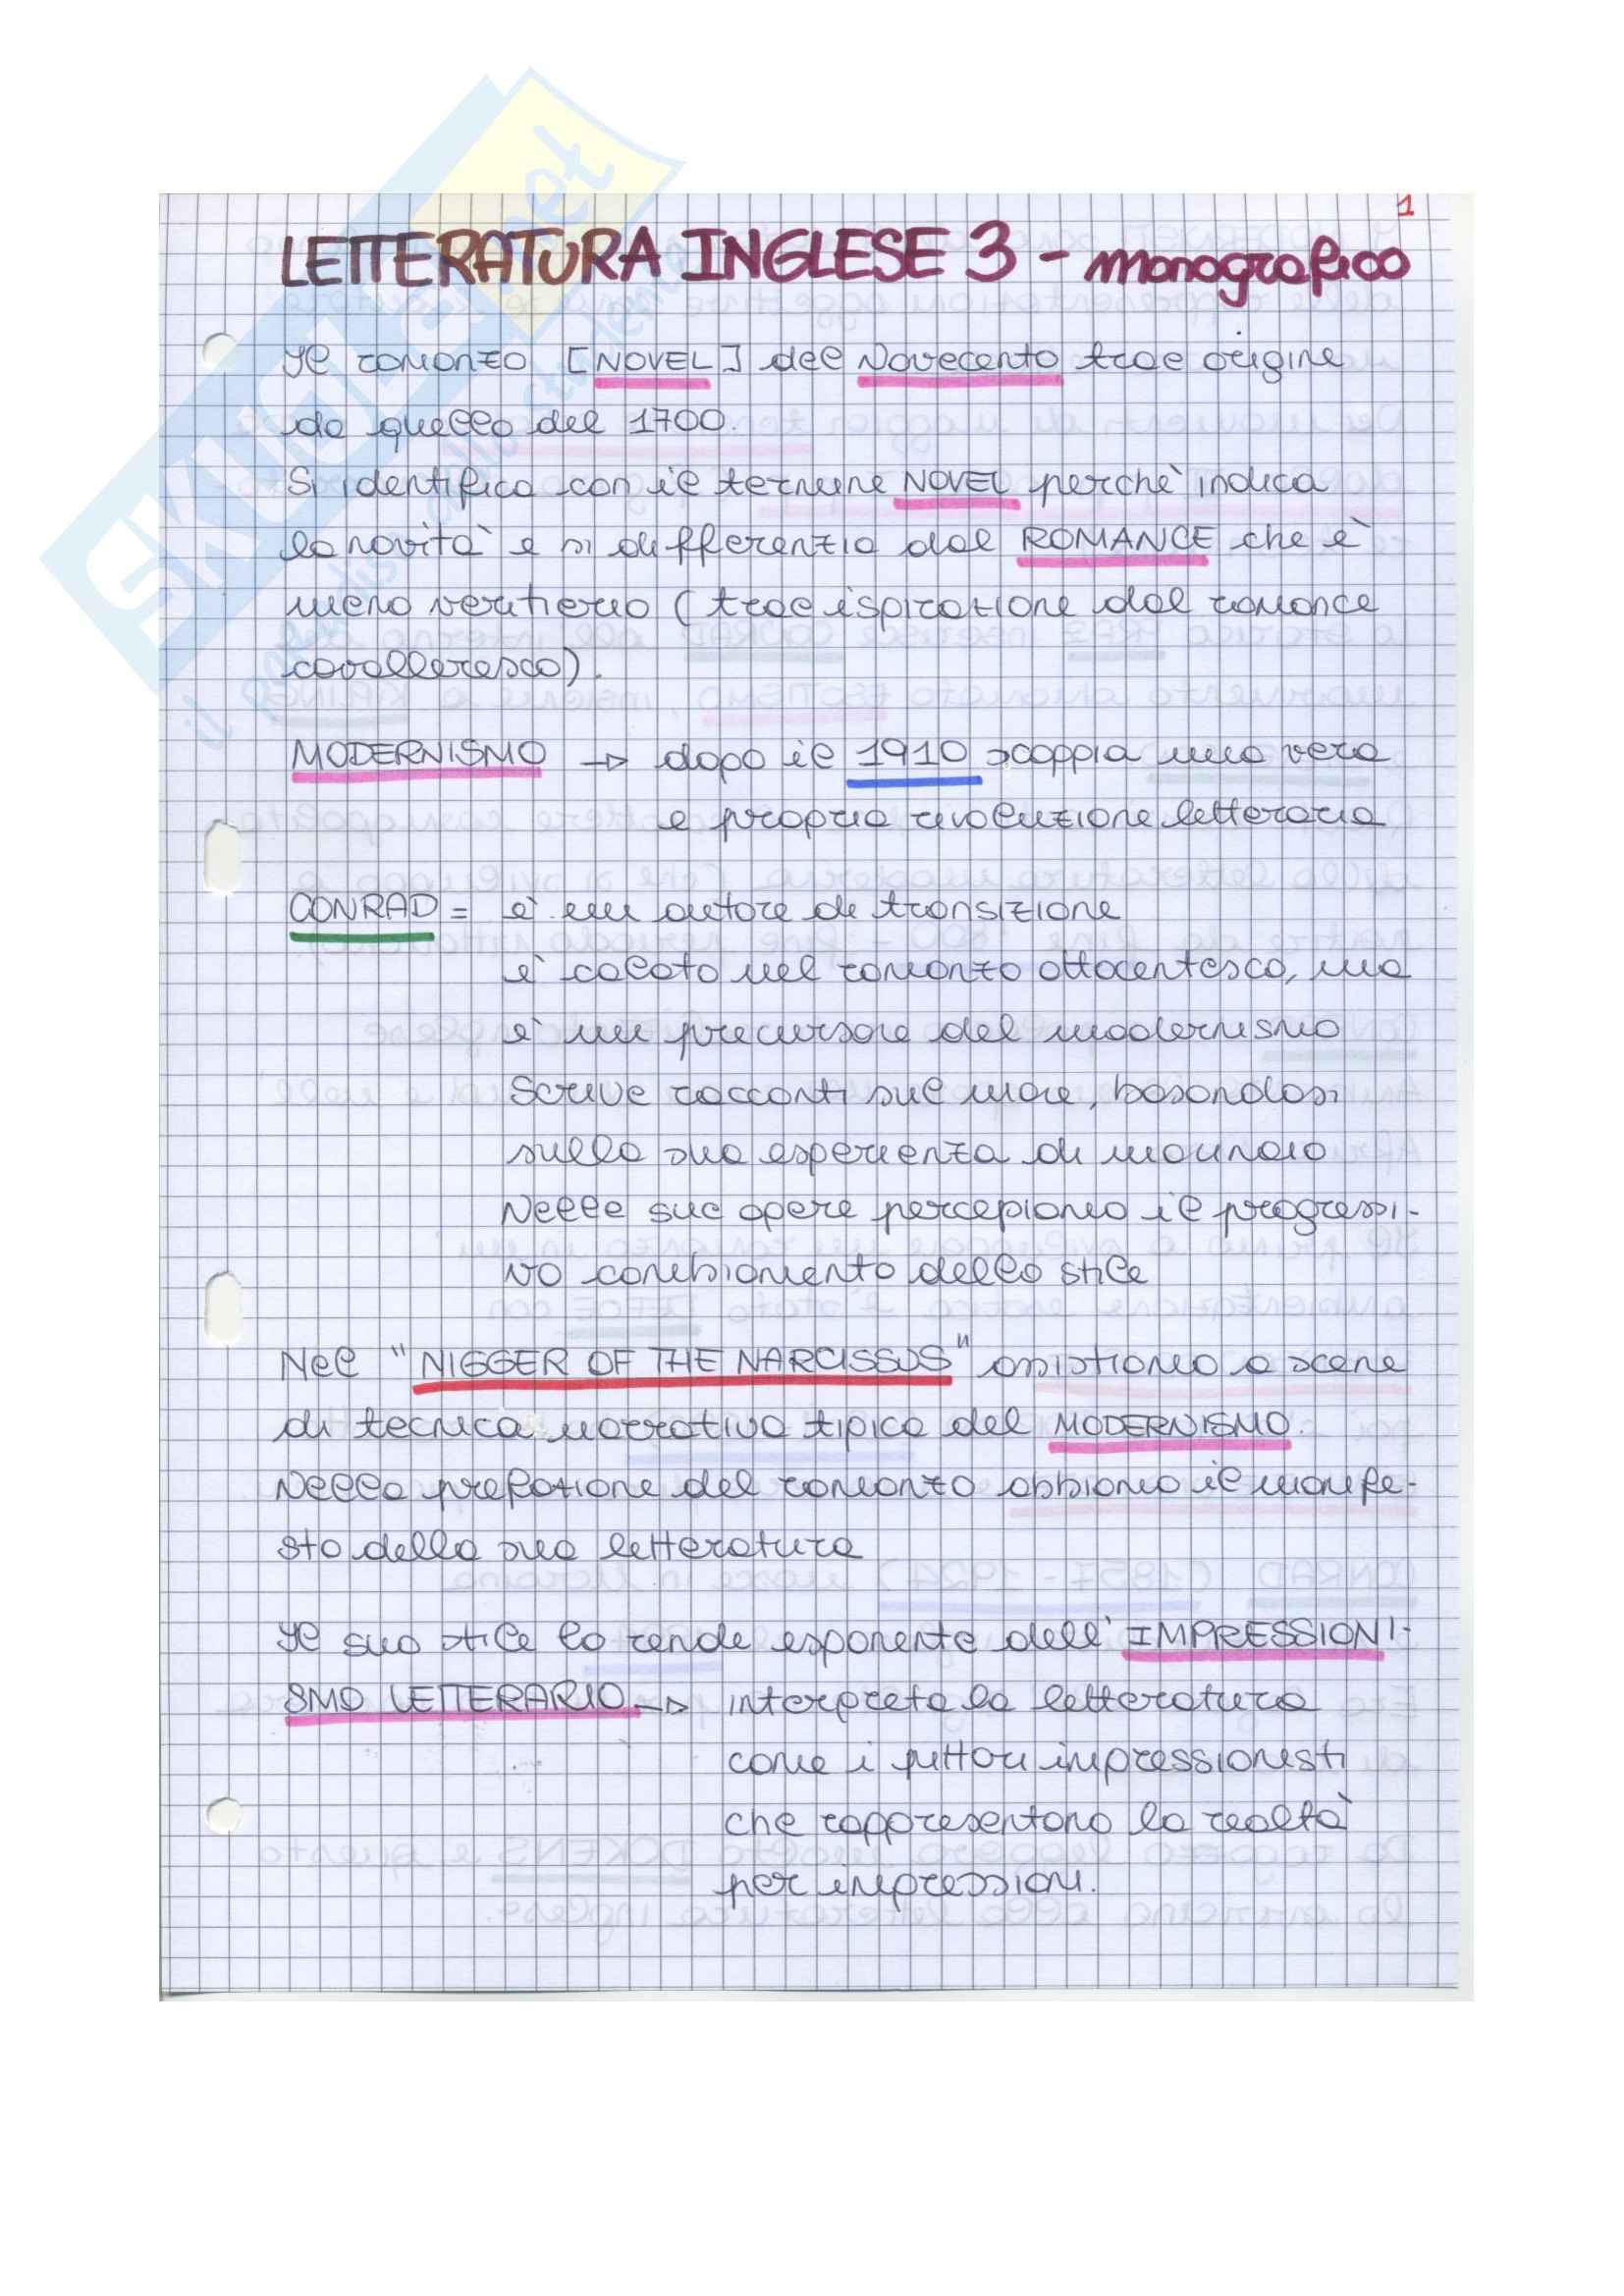 1
LETTERATURA INGLESE 3 - monografico
Il romanzo [NOVEL] del Novecento trae origine
da quello del 1700.
Si identifica con il termine NOVEL perchè indica
la novità e si differenzia dal ROMANCE che è
meno veritiero (trae ispirazione dal romance
cavalleresco).
MODERNISMO → dopo il 1910 scoppia una vera
e propria rivoluzione letteraria
CONRAD = è un autore di transizione
è calato nel romanzo ottocentesco, ma
è un precursore del modernismo
Scrive racconti sul mare, basandosi
sulla sua esperienza di marinaio
Nelle sue opere percepiamo il progressi-
vo cambiamento dello stile
Nel "NIGGER OF THE NARCISSUS" assistiamo a scene
di tecnica narrativa tipica del MODERNISMO.
Nella prefazione del romanzo abbiamo il manife-
sto della sua letteratura
Il suo stile lo rende esponente dell'IMPRESSIONI-
SMO LETTERARIO → interpreta la letteratura
come i pittori impressionisti
che rappresentano la realtà
per impressioni.
SKUOLA.net
il paradiso dello studente